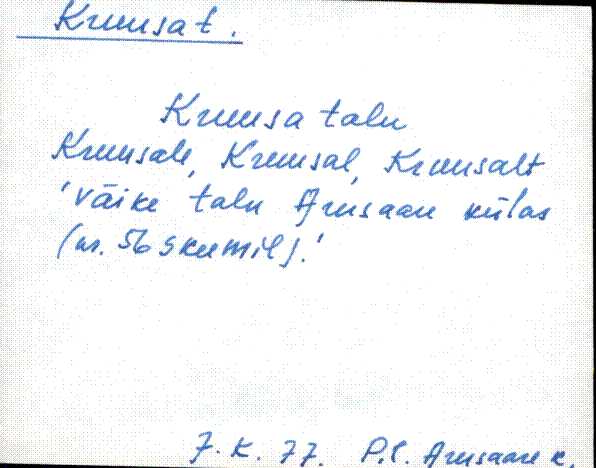 Kruusa t.
Kruusa talu
Kruusale, Kruusal, Kruusalt
'väike talu Arusaare külas
(nr. 56 skeemil).'
J. K. 77. P.l. Arusaare k.